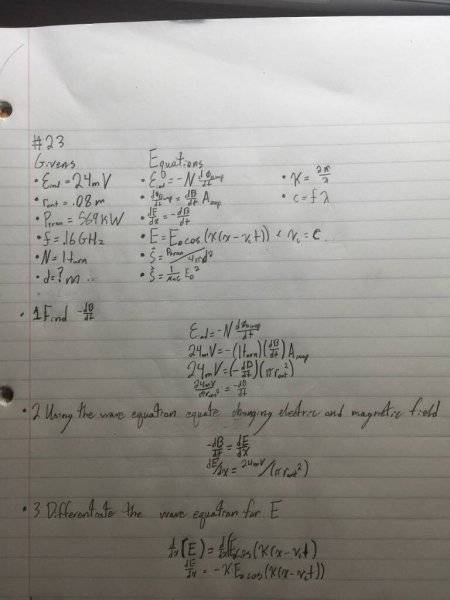 #23
Givens
• ℰind = 24mV
• rant = .08m
• Ptran = 569KW
• f = .16GHz
• N = 1turn
• d = ? m
Equations
• ℰind = -N dΦ/dt
• dΦ/dt = dB/dt A
• dE/dx = -dB/dt
• E = E₀cos(K(x - vₜt)) & vₜ = C
• Ŝ = Ptran/4πd²
• Ŝ = 1/μ₀c E₀²
• K = 2π/λ
• c = fλ
• 1 Find -dB/dt
ℰind = -N dΦ/dt
24mV = -(1turn)(dB/dt) A
24mV = (-dB/dt)(πrant²)
24mV/πrant² = -dB/dt
• 2 Using the wave equation equate changing electric and magnetic field
-dB/dt = dE/dx
dE/dx = 24mV/(πrant²)
• 3 Differentiate the wave equation for E
d/dx(E) = d/dx E₀cos(K(x - vₜt)
dE/dx = -KE₀cos(K(x - vₜt))